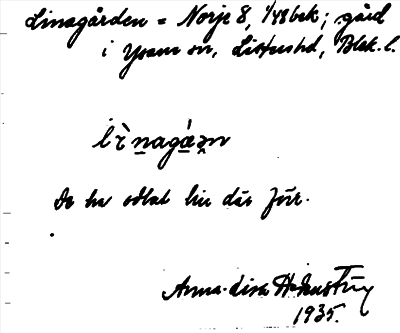 Linagården = Norje 8, 1/48 bek; gård
i Ysane sn, Listers hd, Blek. l.
lìnagá̱ṛn
De ha odlat lin där förr.
Anna-Lisa
1935.